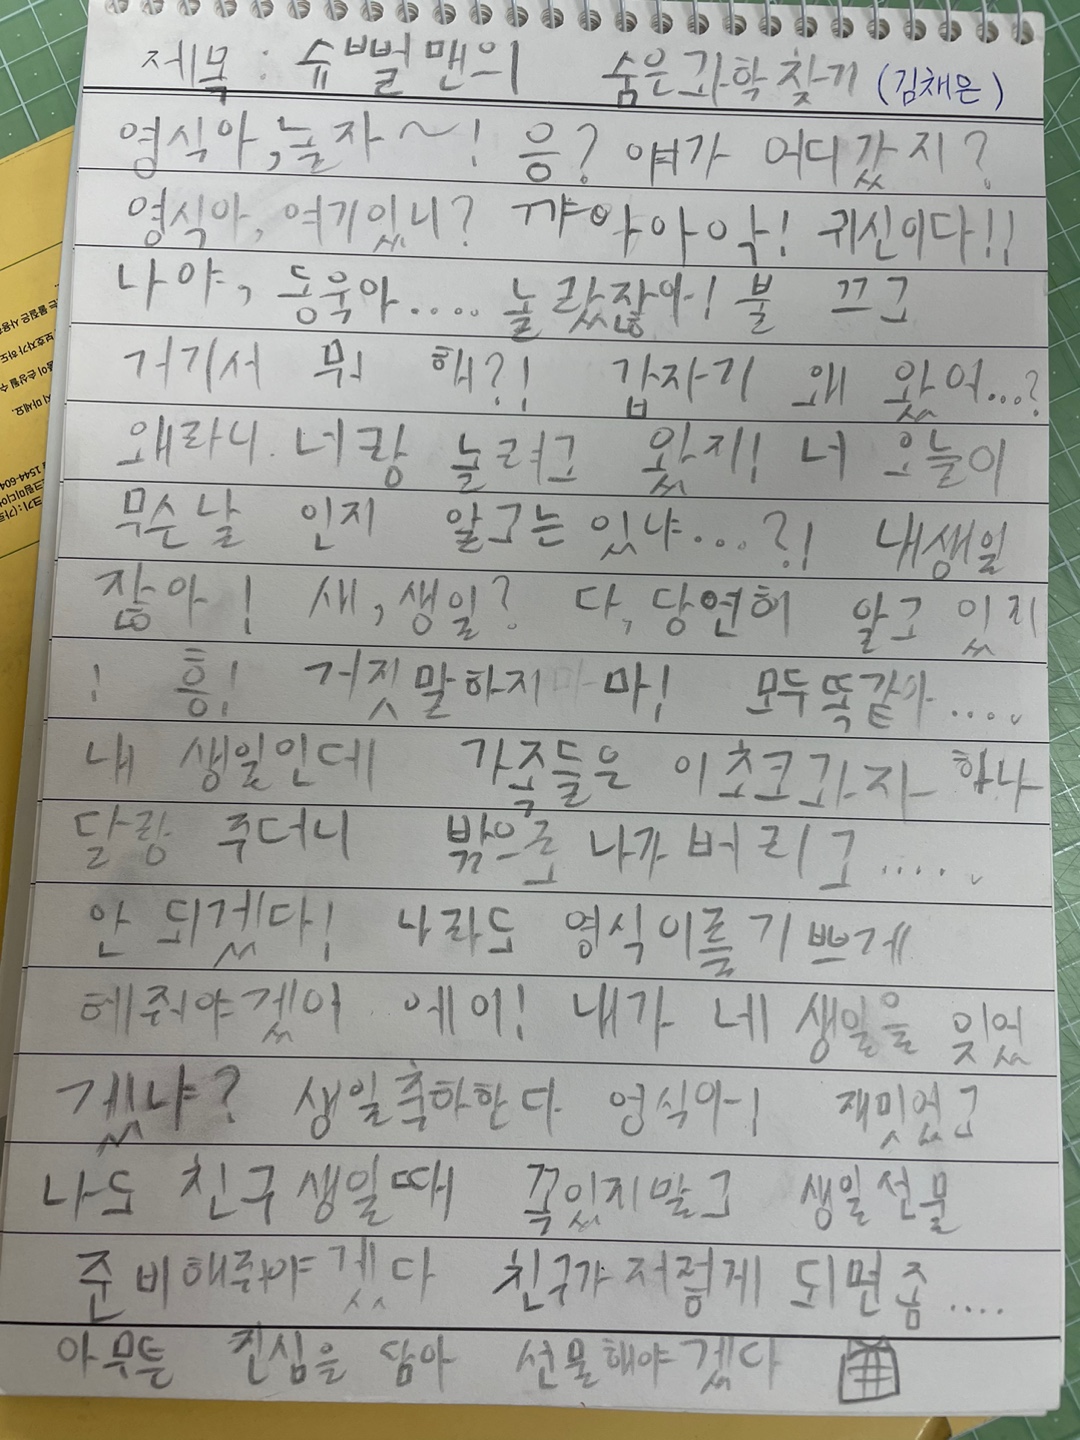 제목 : 슈뻘맨의 숨은과학찾기 (김채은)
영식아, 놀자~! 응? 얘가 어디갔지?
영식아, 여기있니? 꺄아아악! 귀신이다!!
나야, 동욱아.... 놀랐잖아! 불 끄고
거기서 뭐 해?! 갑자기 왜 왔어...?
왜라니. 너랑 놀려고 왔지! 너 오늘이
무슨날 인지 알고는있냐...?! 내생일
잖아! 새, 생일? 다, 당연히 알고 있지
! 흥! 거짓말하지 마! 모두똑같아....
내 생일인데 가족들은 이초코과자 하나
달랑 주더니 밖으로 나가버리고.....
안 되겠다! 나라도 영식이를 기쁘게
헤줘야겠어 에이! 내가 네 생일을 잊었
겠냐? 생일축하한다 영식아! 재밌었고
나도 친구생일때 꼭있지말고 생일선물
준비해줘야겠다 친구가저렇게 되면좀....
아무튼 진심을 담아 선물해야겠다
1544-604